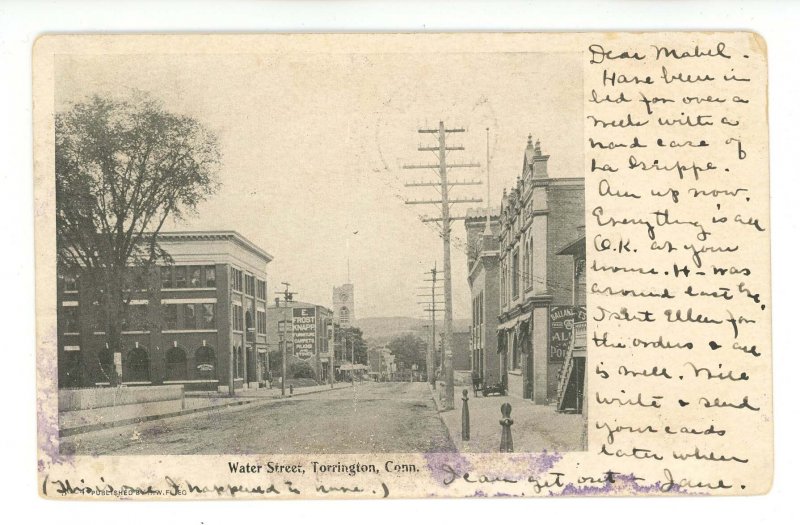 Dear Mabel -
Have been in
bed for over a
week with a
hard case of
La Grippe.
Am up now.
Everything is all
O.K. at your
house. H- was
around last Eve.
Isabel Ellen for
the orders & all
is well. Will
write & send
your cards
later when
I can get out - Jane.
E.
FROST
KNAPP
FURNITURE
CARPETS
BALLANT
ALE
PORTER
Water Street, Torrington, Conn.
(This is one I happened to have.)
PUBLISHED BY H.W.